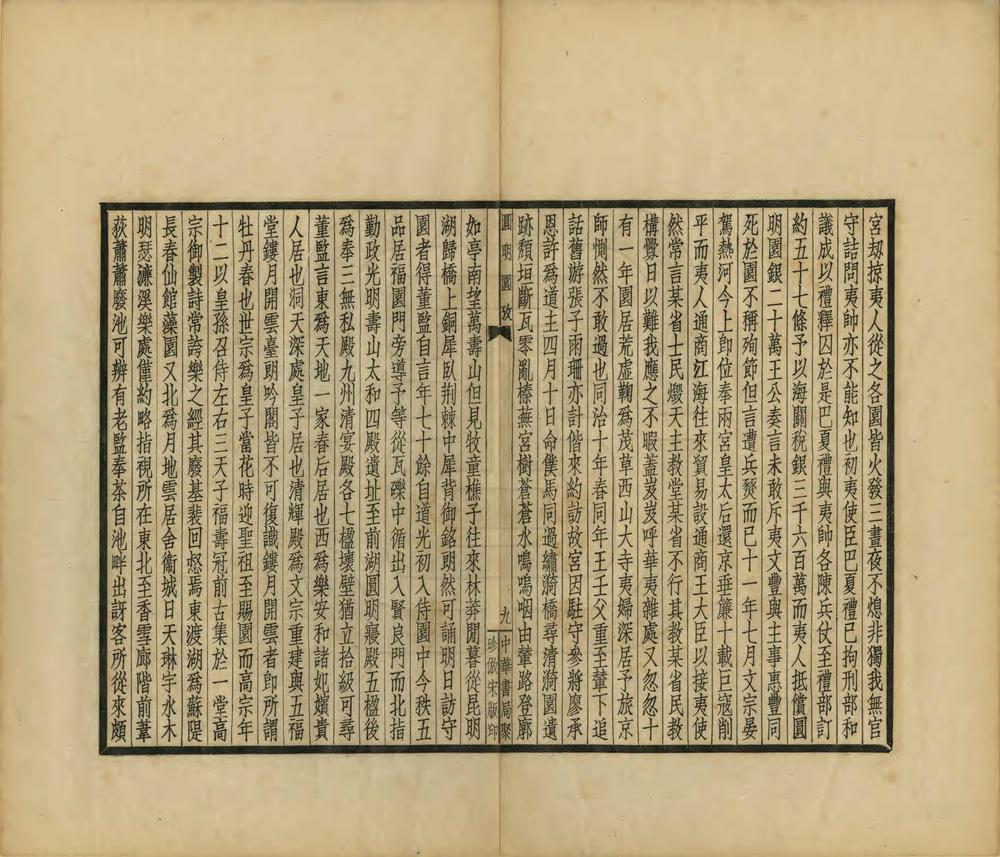 宮刼掠夷人從之各園皆火發三晝夜不熄非獨我無官
守詰問夷帥亦不能知也初夷使臣巴夏禮已拘刑部和
議成以禮釋囚於是巴夏禮與夷帥各陳兵仗至禮部訂
約五十七條予以海關稅銀三千六百萬而夷人抵償圓
明園銀二十萬王公奏言未敢斥夷文豐與主事惠豐同
死於園不稱殉節但言遭兵燹而已十一年七月文宗晏
駕熱河今上卽位奉兩宮皇太后還京垂簾十載巨寇削
平而夷人通商江海往來貿易設通商王大臣以接夷使
然常言某省士民燬天主教堂某省不行其教某省民教
構釁日以難我應之不暇蓋岌岌呼華夷雜處又忽忽十
有一年園居荒虛鞠爲茂草西山大寺夷婦深居予旅京
師惻然不敢過也同治十年春同年王壬父重至輦下追
話舊游張子雨珊亦計偕來約訪故宮因駐守參將廖承
恩許爲道主四月十日命僕馬同過繡漪橋尋清漪園遺
跡頹垣斷瓦零亂榛蕪宮樹蒼蒼水鳴嗚咽由輦路登廓
圓明園攷
九
中華書局聚
珍倣宋版印
如亭南望萬壽山但見牧童樵子往來林莽閒暮從昆明
湖歸橋上銅犀臥荆棘中犀背御銘朗然可誦明日訪守
園者得董監自言年七十餘自道光初入侍園中今秩五
品居福園門旁導予等從瓦礫中循出入賢良門而北指
勤政光明壽山太和四殿遺址至前湖圓明寢殿五楹後
爲奉三無私殿九州清宴殿各七楹壞壁猶立拾級可尋
董監言東爲天地一家春后居也西爲樂安和諸妃嬪貴
人居也洞天深處皇子居也清輝殿爲文宗重建與五福
堂鏤月開雲臺朗吟閣皆不可復識鏤月開雲者卽所謂
牡丹春也世宗爲皇子當花時迎聖祖至賜園而高宗年
十二以皇孫召侍左右三天子福壽冠前古集於一堂高
宗御製詩常誇樂之經其廢基裴回惄焉東渡湖爲蘇隄
長春仙館藻園又北爲月地雲居舍衞城日天琳宇水木
明瑟濂溪樂處僅約略指視所在東北至香雪廊階前葦
荻蕭蕭廢池可辨有老監奉茶自池畔出訝客所從來頗